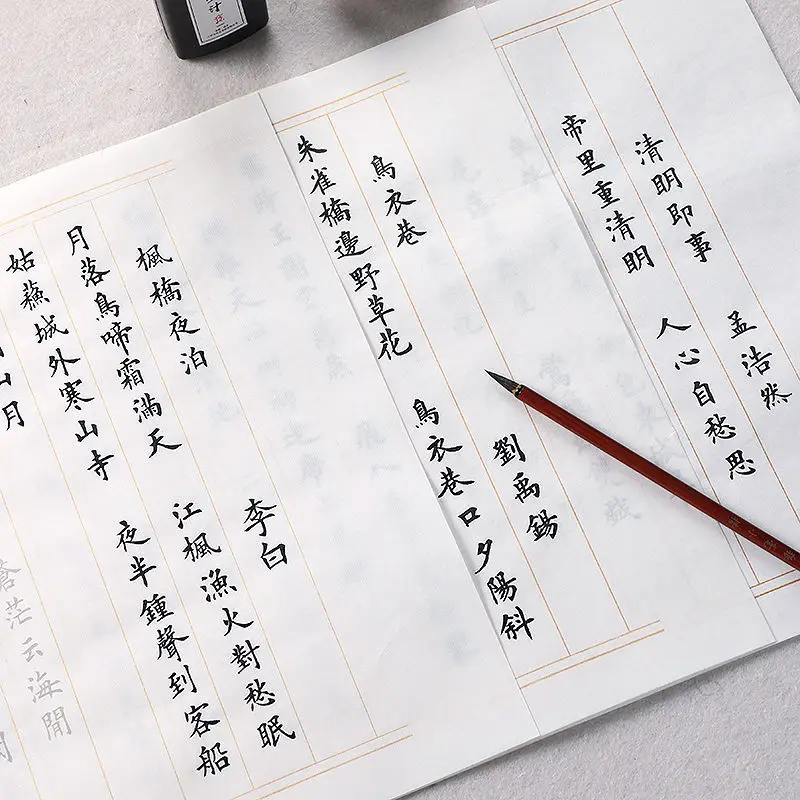 清明即事 孟浩然
帝里重清明 人心自愁思
烏衣巷 劉禹錫
朱雀橋邊野草花 烏衣巷口夕陽斜
楓橋夜泊 李白
月落烏啼霜滿天 江楓漁火對愁眠
姑蘇城外寒山寺 夜半鐘聲到客船
山月
蒼茫云海間